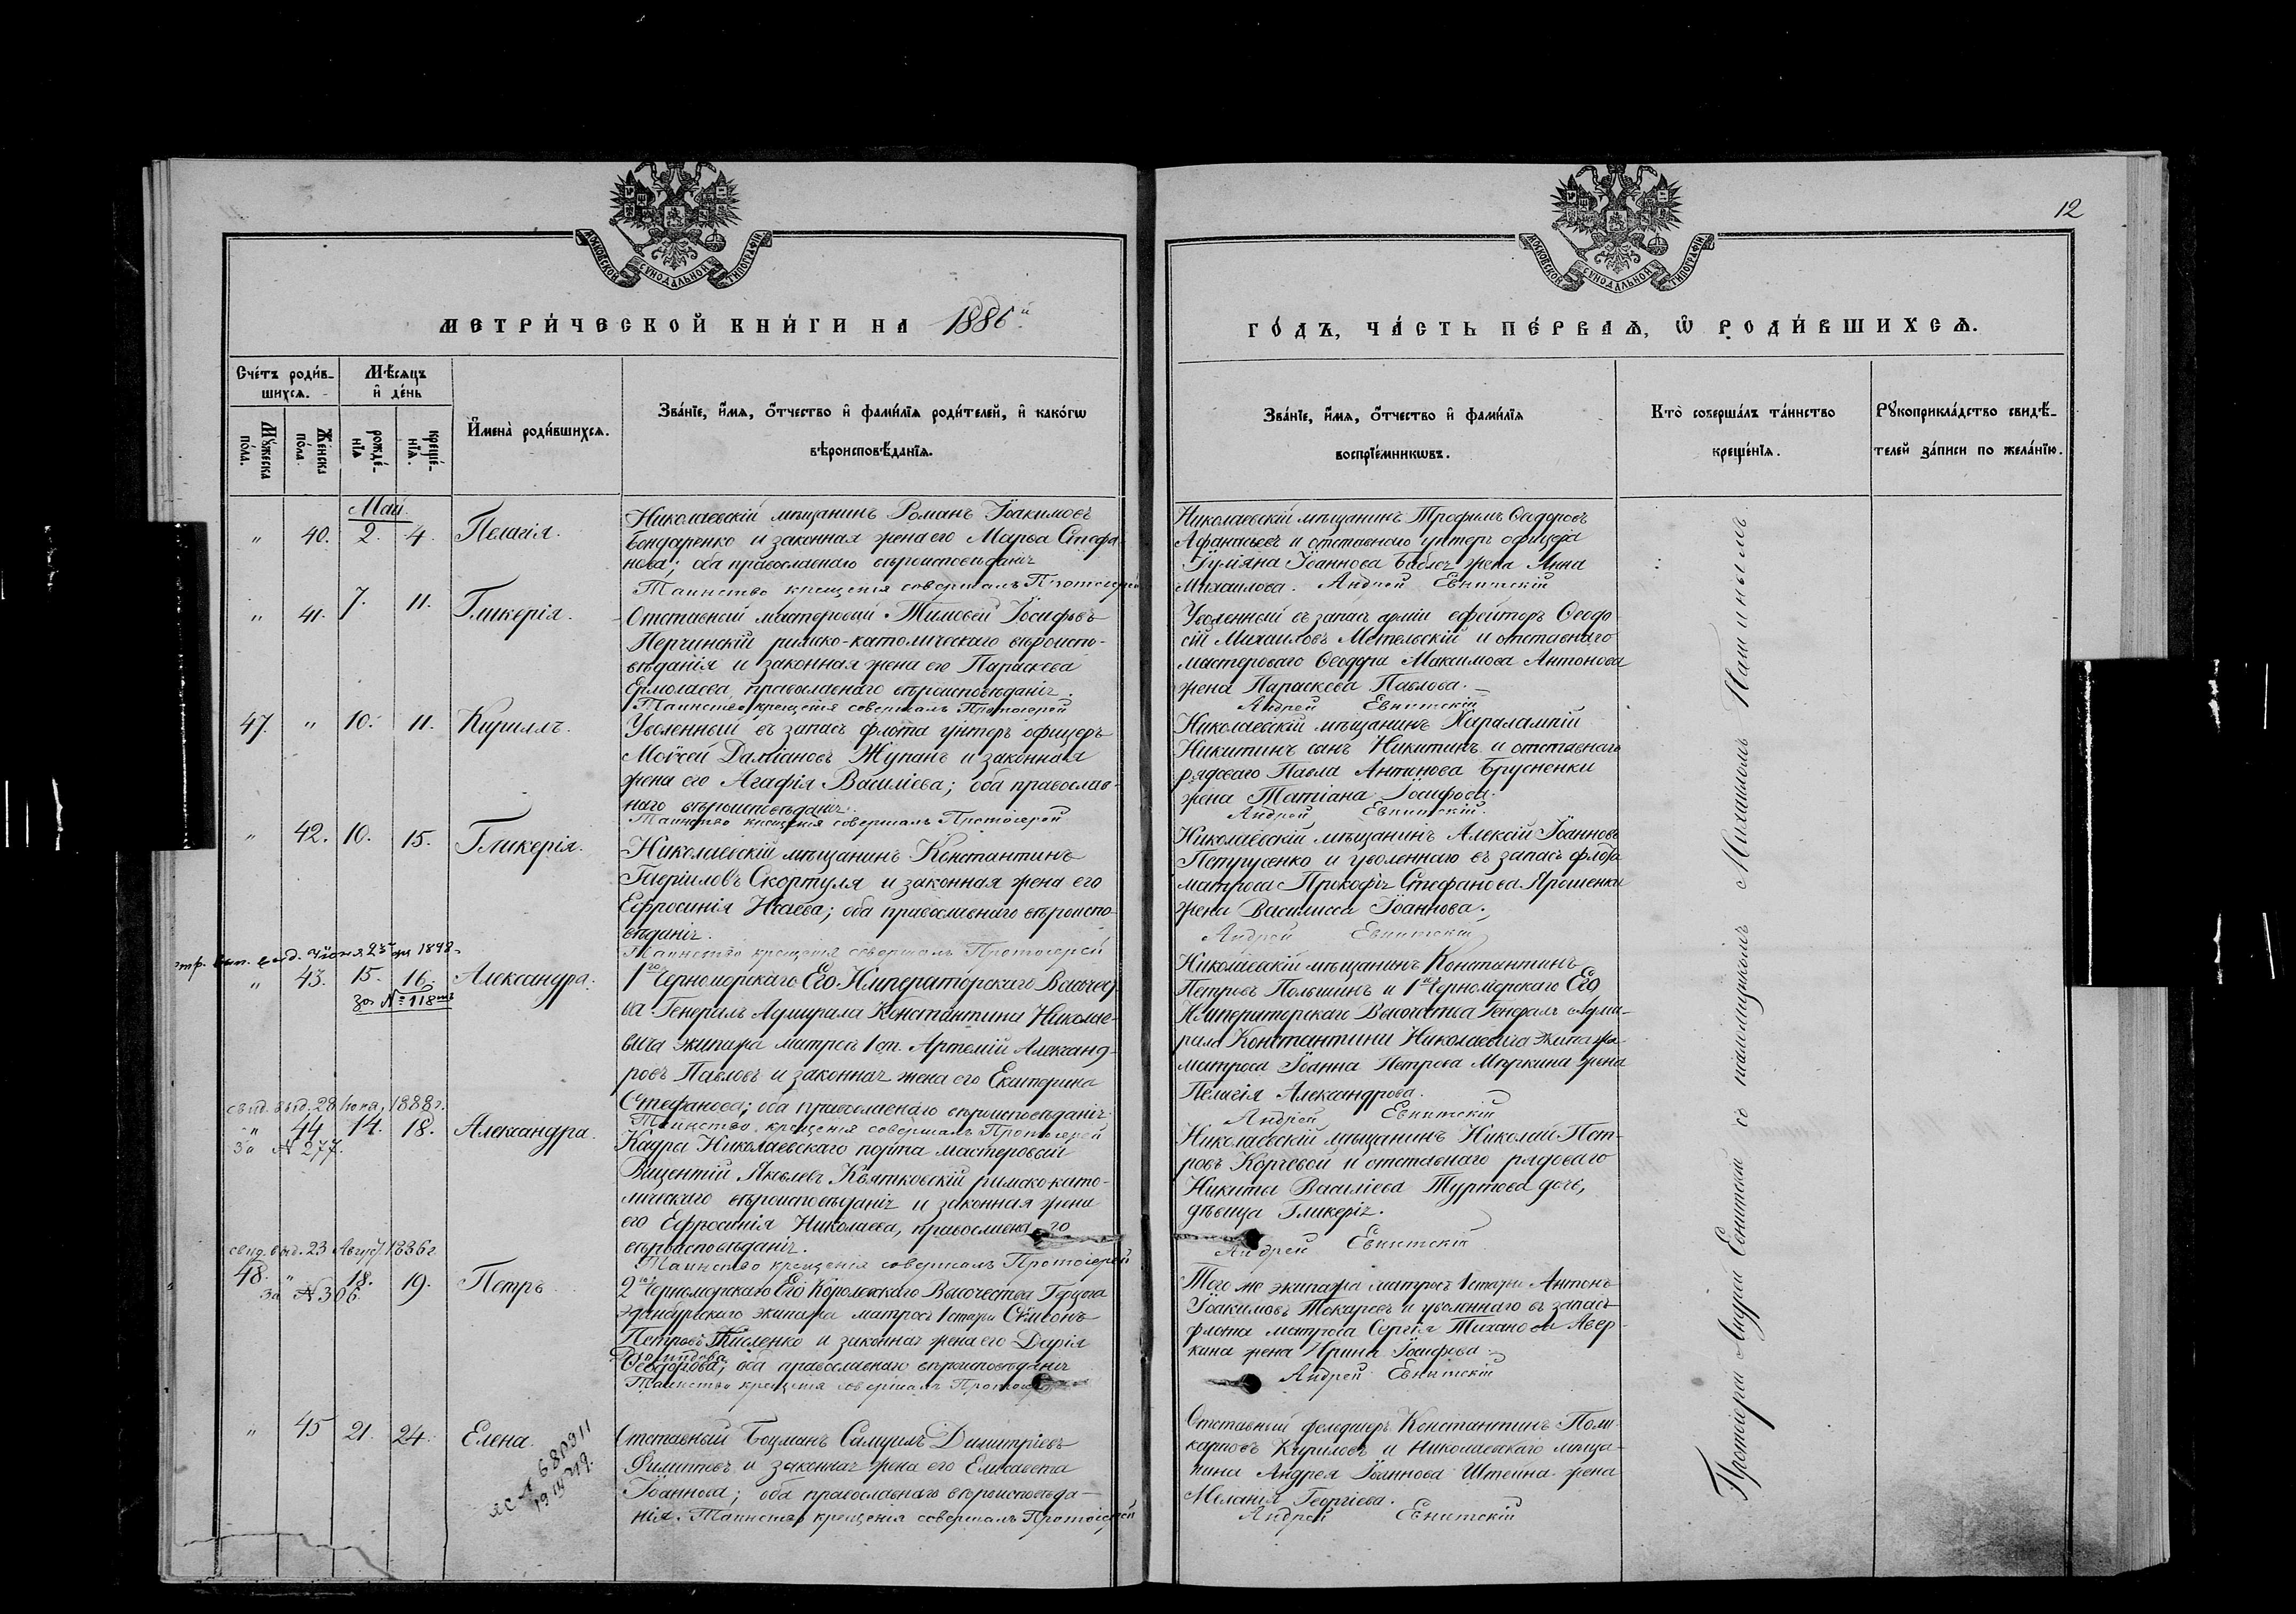 12
МОСКОВСКОЙ СѴНОДАЛЬНОЙ ТИПОГРАФІИ
МОСКОВСКОЙ СѴНОДАЛЬНОЙ ТИПОГРАФІИ
МЕТРИ́ЧЕСКОЙ КНИ́ГИ НА 1886й
ГО́ДЪ, ЧА́СТЬ ПЕ́РВАѦ, Ѿ РОДИ́ВШИХСѦ.
Сче́тъ роди́в-
шихсѧ.
Мѣ́сѧцъ
и҆ де́нь
Мꙋ́жеска по́ла.
Же́нска по́ла.
рожде́-нїѧ
креще́-нїѧ.
И҆мена̀ роди́вшихсѧ.
Зва́нїе, и҆́мѧ, ѻ҆́тчество и҆ фами́лїѧ роди́телей, и҆ како́гѡ
вѣроисповѣ́данїѧ.
Зва́нїе, и҆́мѧ, ѻ҆́тчество и҆ фами́лїѧ
воспрїе́мникѡвъ.
Кто̀ соверша́лъ та́инство
креще́нїѧ.
Рꙋкоприкла́дство свидѣ́-
телей за́писи по жела́нїю.
Май
" 40. 2. 4. Пелагія.
Николаевскій мѣщанинъ Романъ Іоакимовъ
Бондаренко и законная жена его Марѳа Стефа-
нова; оба православнаго вѣроисповѣданія
Таинство крещенія совершалъ Протоіерей
Николаевскій мѣщанинъ Трофимъ Ѳедоровъ
Афанасьевъ и отставного унтеръ офицера
Іуліяна Іоаннова жена Анна
Михаилова. Андрей Евнитскій
" 41. 7. 11. Гликерія.
Отставный мастеровый Тимоѳей Іосифовъ
Перчинскій римско-католическаго вѣроиспо-
вѣданія и законная жена его Параскева
Ермолаева, православнаго вѣроисповѣданія.
Таинство крещенія совершалъ Протоіерей
Уволенный въ запасъ арміи ефрейторъ Ѳеодо-
сій Михаиловъ Метельскій и отставнаго
мастероваго Ѳеодора Максимова Антонова
жена Параскева Павлова.
Андрей Евнитскій
47. " 10. 11. Кириллъ.
Уволенный въ запасъ флота унтеръ офицеръ
Моѵсей Даміановъ Жупанъ и законная
жена его Агафія Василіева; оба православ-
наго вѣроисповѣданія.
Таинство крещенія совершалъ Протоіерей
Николаевскій мѣщанинъ Харалампій
Никитинъ сынъ Никитинъ и отставнаго
рядоваго Павла Антонова Брусненки
жена Татіана Іосифова.
Андрей Евнитскій.
" 42. 10. 15. Гликерія.
Николаевскій мѣщанинъ Константинъ
Гавріиловъ Скортуля и законная жена его
Ефросинія Исаева; оба православнаго вѣроиспо-
вѣданія.
Таинство крещенія совершалъ Протоіерей
Николаевскій мѣщанинъ Алексій Іоанновъ
Петрусенко и уволеннаго въ запасъ флота
матроса Прокофія Стефанова Ярошенки
жена Василисса Іоаннова.
Андрей Евнитскій
выд. Іюня 23 дня 1898
" 43. 15. 16. Александра.
за № 118
1го Черноморскаго Его Императорскаго Высочест-
ва Генералъ Адмирала Константина Николае-
вича экипажа матросъ 1 ст. Артемій Александ-
ровъ Павловъ и законная жена его Екатерина
Стефанова; оба православнаго вѣроисповѣданія.
Таинство крещенія совершалъ Протоіерей
Николаевскій мѣщанинъ Константинъ
Петровъ Польшинъ и 1го Черноморскаго Его
Императорскаго Высочества Генералъ Адми-
рала Константина Николаевича экипажа
матроса Іоанна Петрова Муркина жена
Пелагія Александрова.
Андрей Евнитскій
свид. выд. 28 Іюня, 1888 г.
" 44 14. 18. Александра.
за № 277.
Кадры Николаевскаго порта мастеровый
Викентій Яковлевъ Квятковскій римско-като-
лическаго вѣроисповѣданія и законная жена
его Ефросинія Николаева, православнаго
вѣроисповѣданія.
Таинство крещенія совершалъ Протоіерей
Николаевскій мѣщанинъ Николай Пет-
ровъ Корчевой и отставнаго рядоваго
Никиты Василіева Туртова дочь,
дѣвица Гликерія.
Андрей Евнитскій
свид. выд. 23 Август. 1836 г.
48. " 18. 19. Петръ
За № 306.
2го Черноморскаго Его Королевскаго Высочества Герцога
Эдинбургскаго экипажа матросъ 1 статьи Сѵмеонъ
Петровъ Кисленко и законная жена его Дарія
Ѳеодорова; оба православнаго вѣроисповѣданія
Таинство крещенія совершалъ Протоіерей
Того же экипажа матросъ 1 статьи Антонъ
Іоакимовъ Токаревъ и уволеннаго въ запасъ
флота матроса Сергія Тиханова Авер-
кина жена Ирина Іосифова.
Андрей Евнитскій
" 45 21. 24. Елена.
680911
Отставный Боцманъ Самуилъ Димитріевъ
Филиповъ и законная жена его Елисавета
Іоаннова; оба православнаго вѣроисповѣда-
нія. Таинство крещенія совершалъ Протоіерей
Отставный фельдшеръ Константинъ Поли-
карповъ Кириловъ и Николаевскаго мѣща-
нина Андрея Іоаннова Штейна жена
Меланія Георгіева.
Андрей Евнитскій
Протоіерей Андрей Евнитскій съ псаломщикомъ Михаиломъ